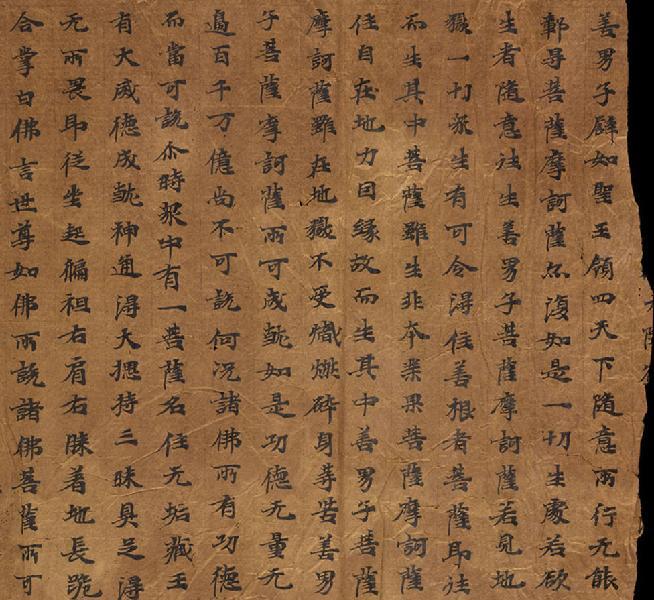 善男子辟如聖王領四天下隨意所行无能
鄣㝵菩薩摩訶薩亦復如是一切生處若欲
生者隨意往生善男子菩薩摩訶薩若見地
獄一切衆生有可令得住善根者菩薩即往
而生其中菩薩雖生非本業果菩薩摩訶薩
住自在地力因緣故而生其中善男子菩薩
摩訶薩雖在地獄不受熾燃碎身等苦善男
子菩薩摩訶薩所可成就如是功德无量无
邊百千万億尚不可說何況諸佛所有功德
而當可說尒時衆中有一菩薩名住无垢藏王
有大威德成就神通得大揔持三昧具足得
无所畏即從坐起偏袒右肩右膝著地長跪
合掌白佛言世尊如佛所說諸佛菩薩所可